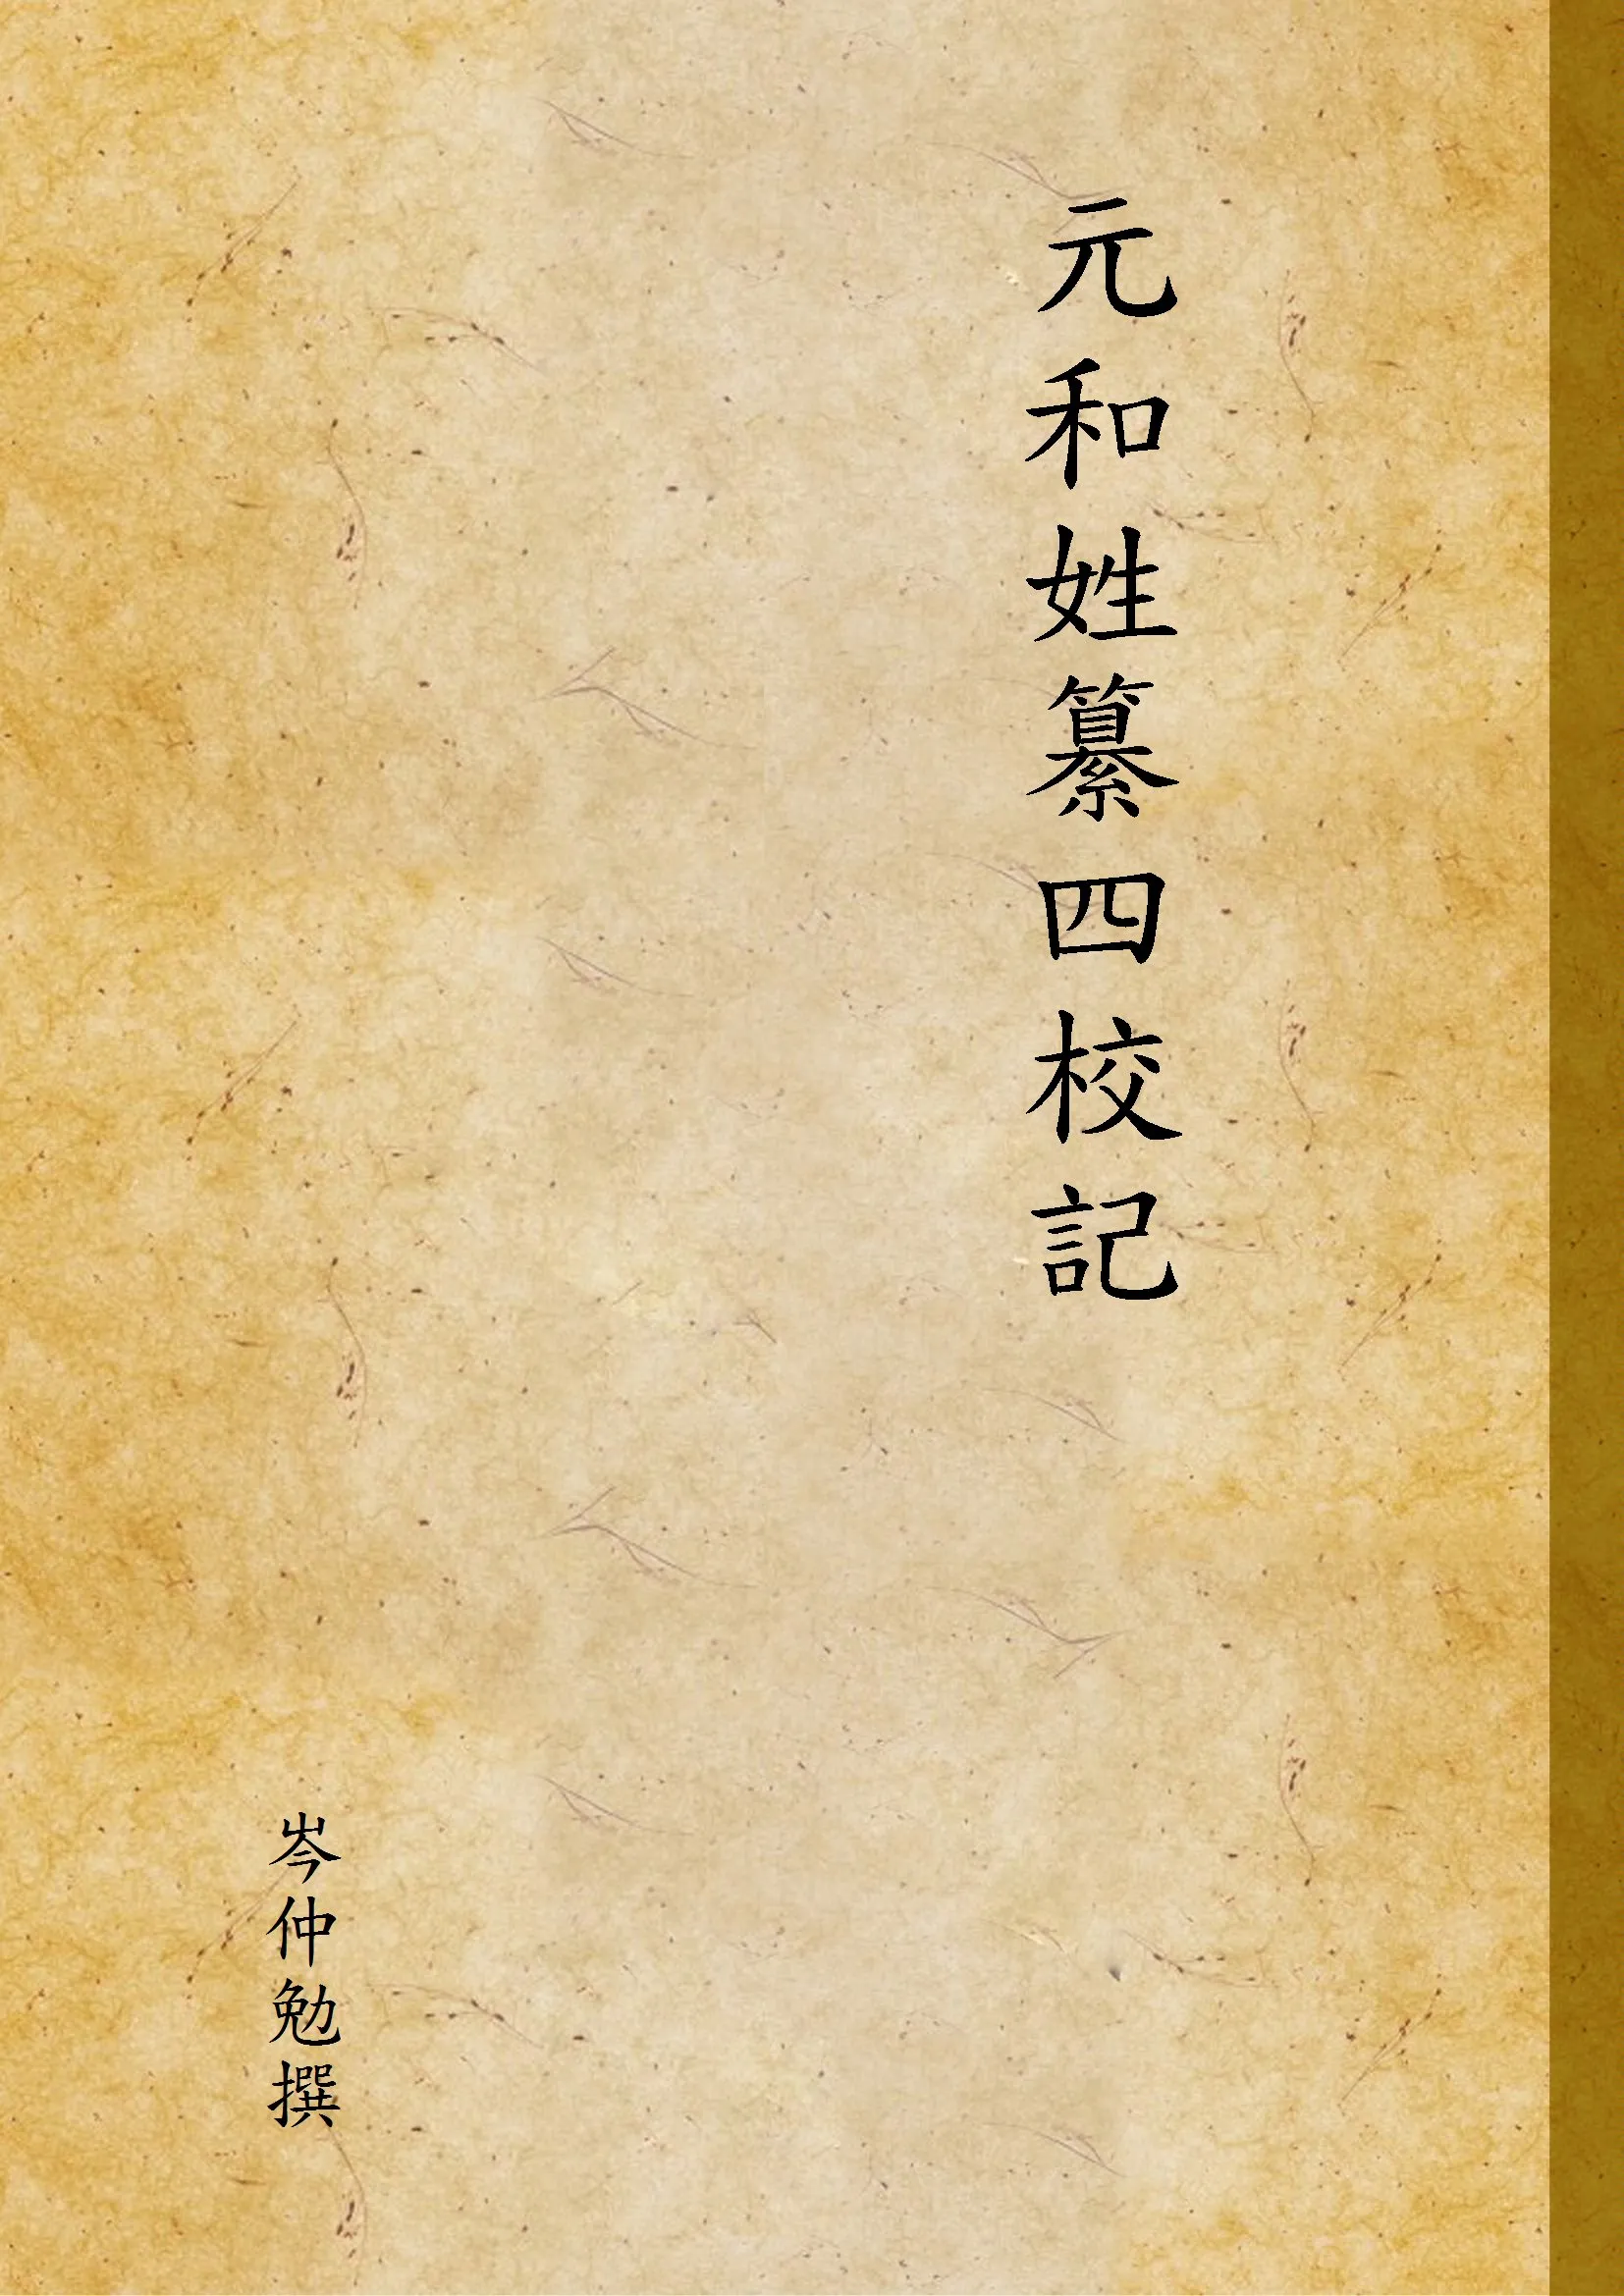 元和姓纂四校記
岑仲勉撰